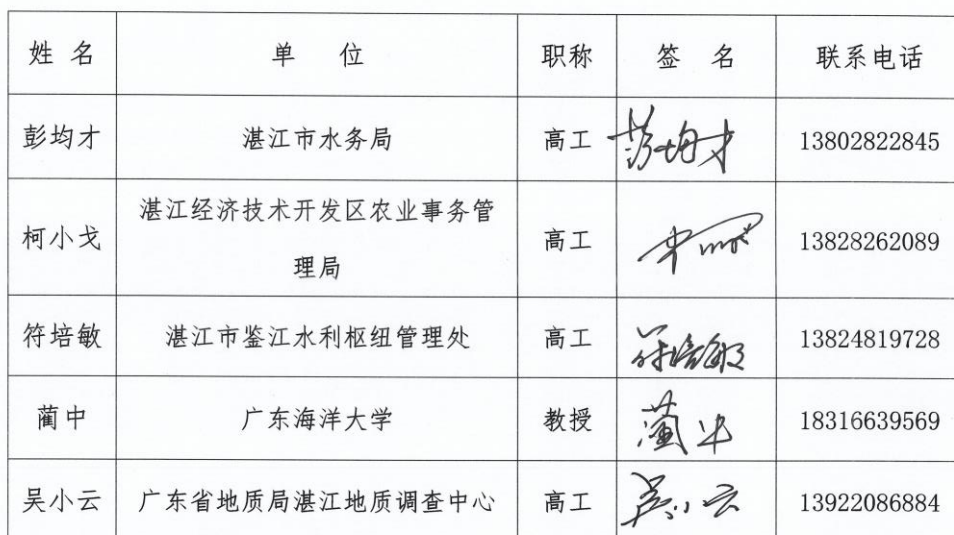 姓 名 单 位 职称 签 名 联系电话
彭均才 湛江市水务局 高工 彭均才 13802822845
柯小戈 湛江经济技术开发区农业事务管
理局 高工 13828262089
符培敏 湛江市鉴江水利枢纽管理处 高工 符培敏 13824819728
蔺中 广东海洋大学 教授 蔺中 18316639569
吴小云 广东省地质局湛江地质调查中心 高工 吴小云 13922086884